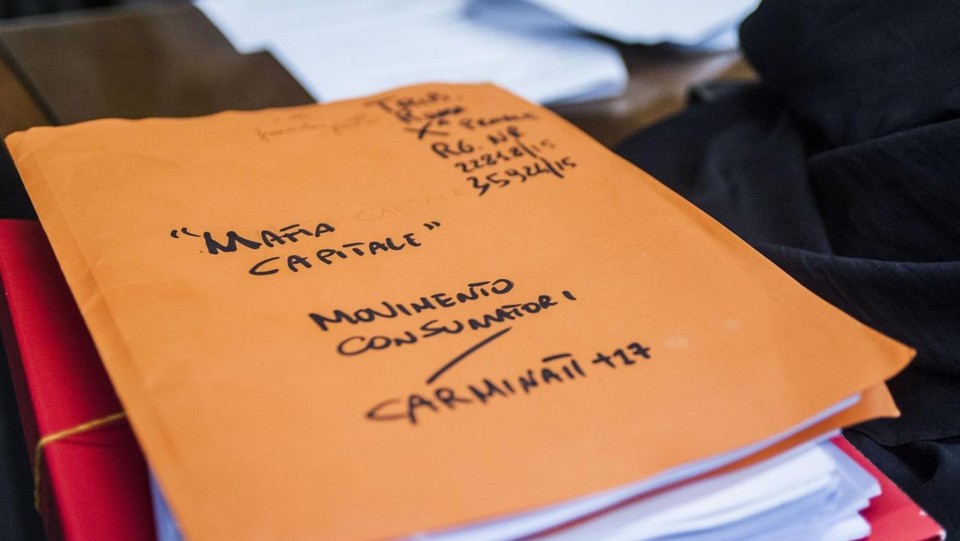 TRIB.
ROMA
X^a PENALE
RG. NR
22818/15
35924/15
"MAFIA
CAPITALE"
MOVIMENTO
CONSUMATORI
/
CARMINATI +27